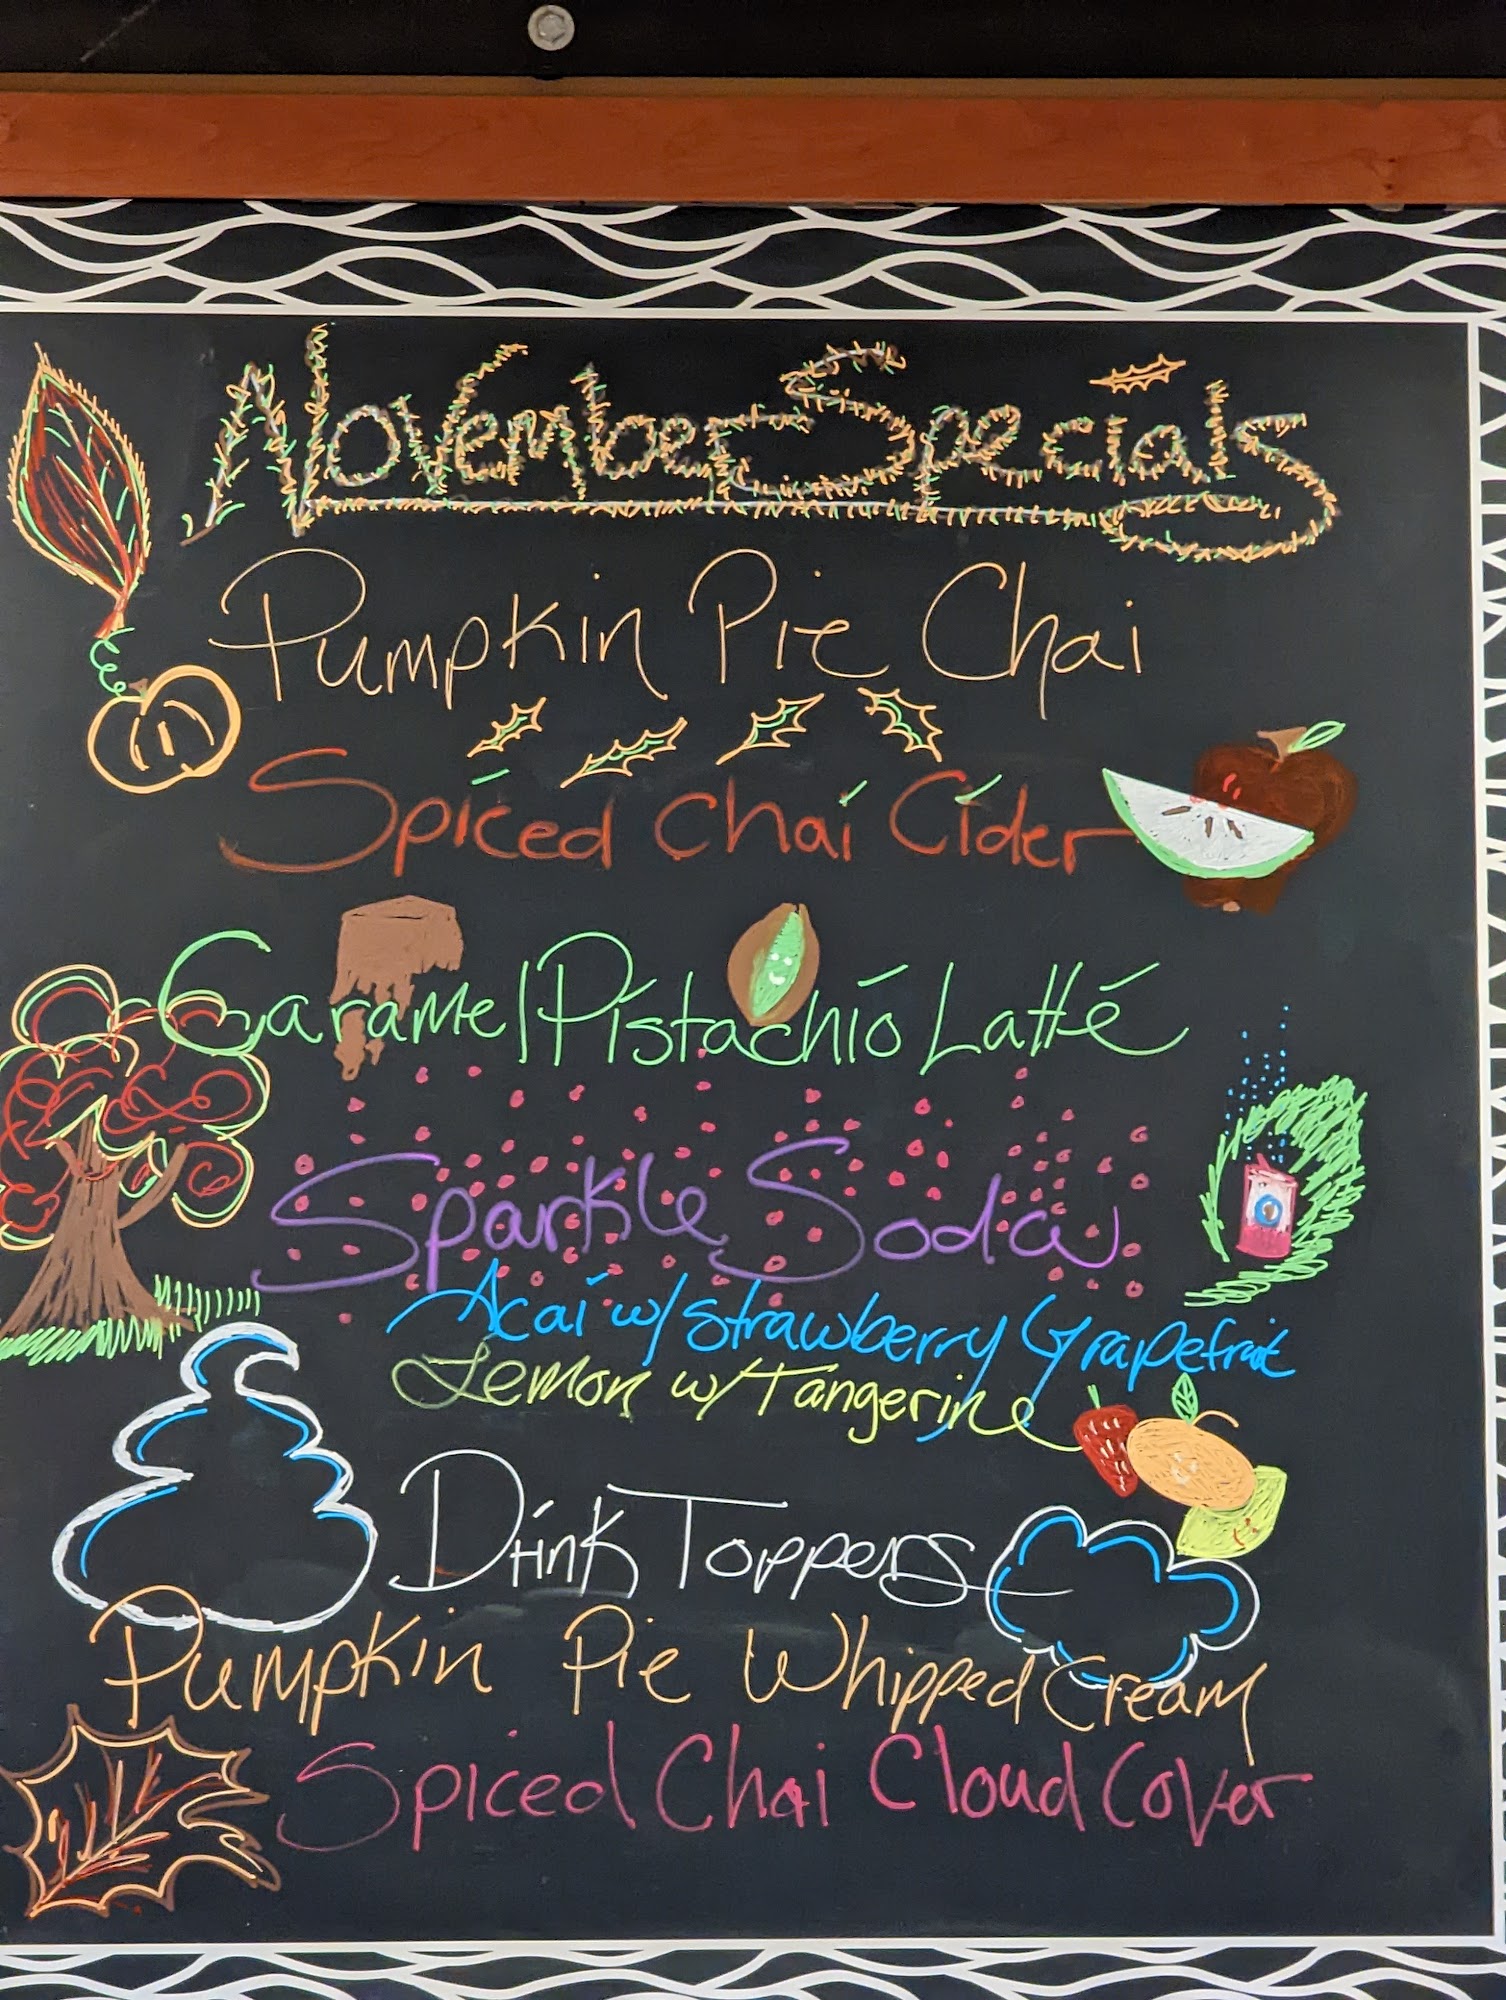 November Specials
Pumpkin Pie Chai
Spiced Chai Cider
Caramel Pistachio Latté
Sparkle Soda
Acai w/ Strawberry Grapefruit
Lemon w/ Tangerine
Drink Toppers
Pumpkin Pie Whipped Cream
Spiced Chai Cloud Cover